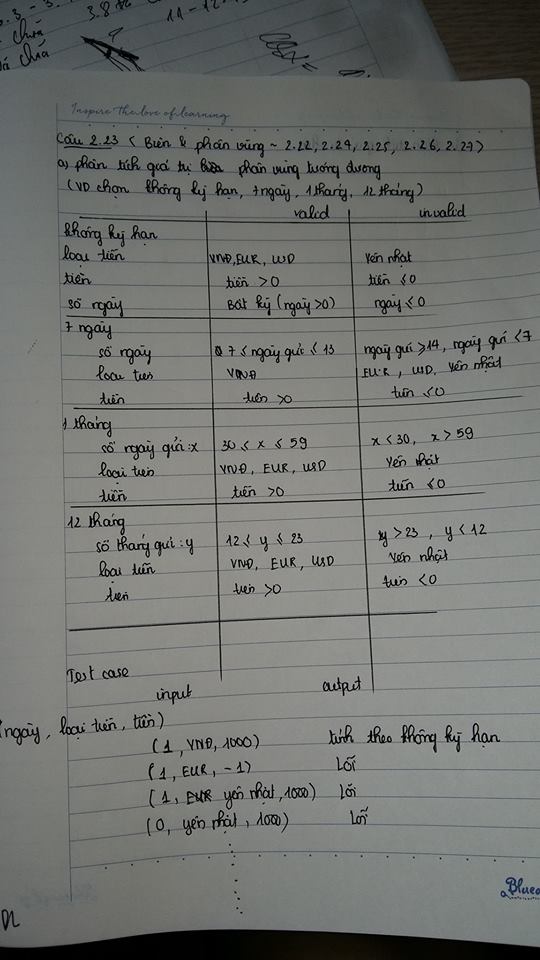 3.8
11-12
chữa
chữa
Inspire the love of learning
Câu 2.23 < Biên & phân vùng ~ 2.22, 2.24, 2.25, 2.26, 2.27 >
a) phân tích giá trị phân vùng tương đương
(VD chọn không kỳ hạn, 7 ngày, 1 tháng, 12 tháng)
valid invalid
không kỳ hạn
loại tiền VNĐ, EUR, USD Yên nhật
tiền tiền > 0 tiền ≤ 0
số ngày Bất kỳ (ngày > 0) ngày ≤ 0
7 ngày
số ngày 7 ≤ ngày gửi ≤ 13 ngày gửi ≥ 14, ngày gửi < 7
loại tiền VNĐ EUR, USD, Yên nhật
tiền tiền > 0 tiền ≤ 0
1 tháng
số ngày gửi : x 30 ≤ x ≤ 59 x < 30, x > 59
loại tiền VNĐ, EUR, USD Yên nhật
tiền tiền > 0 tiền ≤ 0
12 tháng
số tháng gửi : y 12 ≤ y ≤ 23 y > 23, y < 12
loại tiền VNĐ, EUR, USD Yên nhật
tiền tiền > 0 tiền < 0
Test case
input output
ngày, loại tiền, tiền)
(1, VNĐ, 1000) tính theo không kỳ hạn
(1, EUR, -1) Lỗi
(1, EUR yên nhật, 1000) Lỗi
(0, yên nhật, 1000) Lỗi
DL